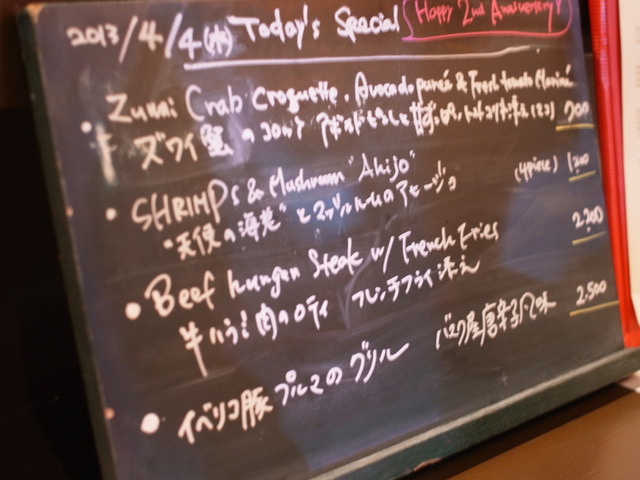 2013/4/4(木) Today's Special Happy 2nd Anniversary!
・Zuwai Crab Croquette. Avocado pureé & Fresh tomato Mariné
ズワイ蟹のコロッケ 900
・SHRIMPS & Mushroom "Ahijo" (4piece) 1,200
"天使の海老"とマッシュルームのアヒージョ
・Beef hunger Steak w/ French Fries 2,200
牛ハラミ肉のロティ フレンチフライ添え
・イベリコ豚プルマのグリル バスク産唐辛子風味 2,500